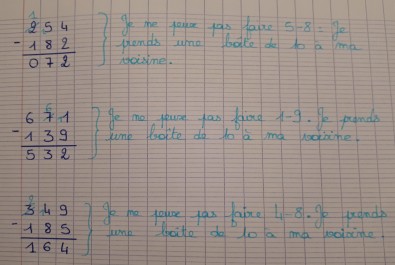 1
2 5 4
- 1 8 2
0 7 2
Je ne peux pas faire 5-8 = Je
prends une boîte de 10 à ma
voisine.
6
6 7 1
- 1 3 9
5 3 2
Je ne peux pas faire 1-9. Je prends
une boîte de 10 à ma voisine.
2
3 4 9
- 1 8 5
1 6 4
Je ne peux pas faire 4-8. Je prends
une boîte de 10 à ma voisine.